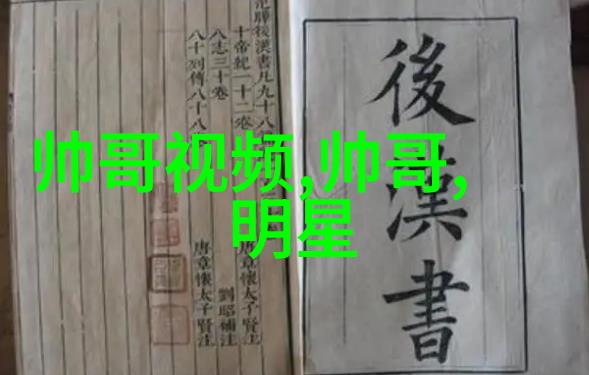 帅哥视频,帅哥,
明星
後漢書
後漢書凡九十八
十帝紀一十二卷 唐章懷太子賢注
八志三十卷 劉昭補注
八十列傳八十八 唐章懷太子賢注